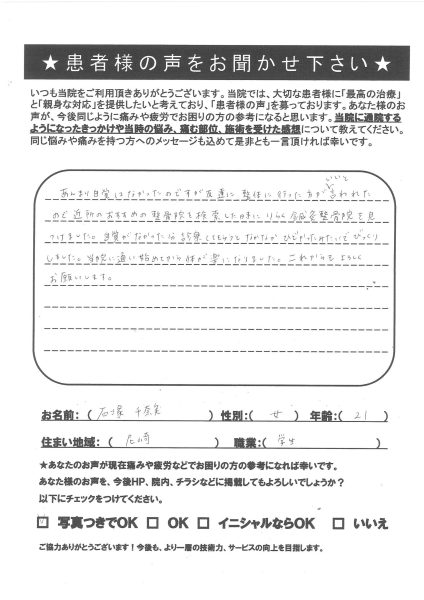 ★患者様の声をお聞かせ下さい★
いつも当院をご利用頂きありがとうございます。当院では、大切な患者様に「最高の治療」
と「親身な対応」を提供したいと考えており、「患者様の声」を募っております。あなた様のお
声が、今後同じように痛みや疲労でお困りの方の参考になると思います。当院に通院する
ようになったきっかけや当時の悩み、痛む部位、施術を受けた感想について教えてください。
同じ悩みや痛みを持つ方へのメッセージも込めて是非とも一言頂ければ幸いです。
いいと
あんまり自覚はなかったのですが友達に整体に行った方が言われた
ので近所のおすすめの整骨院を検索した時にりらく鍼灸整骨院を見
つけました。自覚がなかった分診察してもらうとなかなかひどかったみたいでびっくり
しました。当院に通い始めてから体が楽になりました。これからもよろしく
お願いします。
お名前：（石塚 千奈実）性別：（女）年齢：（21）
住まい地域：（尼崎）職業：（学生）
★あなたのお声が現在痛みや疲労などでお困りの方の参考になれば幸いです。
あなた様のお声を、今後HP、院内、チラシなどに掲載してもよろしいでしょうか？
以下にチェックをつけてください。
☑ 写真つきでOK □ OK □ イニシャルならOK □ いいえ
ご協力ありがとうございます！今後も、より一層の技術力、サービスの向上を目指します。